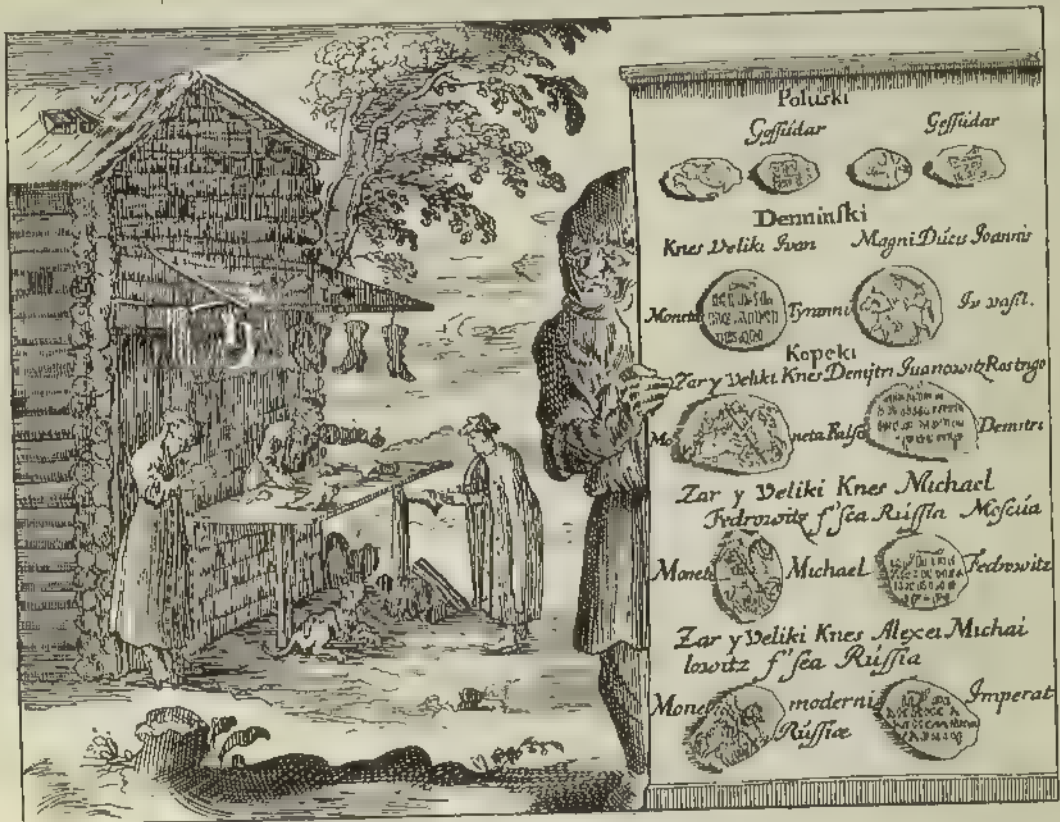 Poluski
Gossúdar Gossúdar
Denninski
Knes Veliki Ivan Magni Dúcis Joannis
Moneta Tyranni Iv vasil.
Kopeki
Zar y Veliki Knes Demijtri Iuanowitz Rostrigo
Mo neta Falso Demitri
Zar y Veliki Knes Michael
Fedrowitz f'sea Rússia Moscúa
Moneta Michael Fedrowitz
Zar y Veliki Knes Alexei Michai
lowitz f'sea Rússia
Monet moderni Imperat
Rússiæ